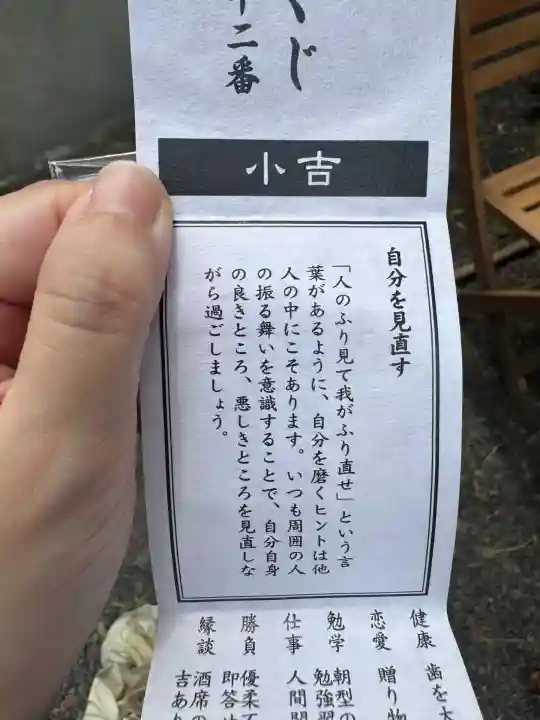 くじ
十二番
小吉
自分を見直す
「人のふり見て我がふり直せ」という言
葉があるように、自分を磨くヒントは他
人の中にこそあります。いつも周囲の人
の振る舞いを意識することで、自分自身
の良きところ、悪しきところを見直しな
がら過ごしましょう。
健康 歯を
恋愛 贈り物
勉学 朝型の
勉強習
仕事 人間関
勝負 優柔不
即答
縁談 酒席の
吉あり